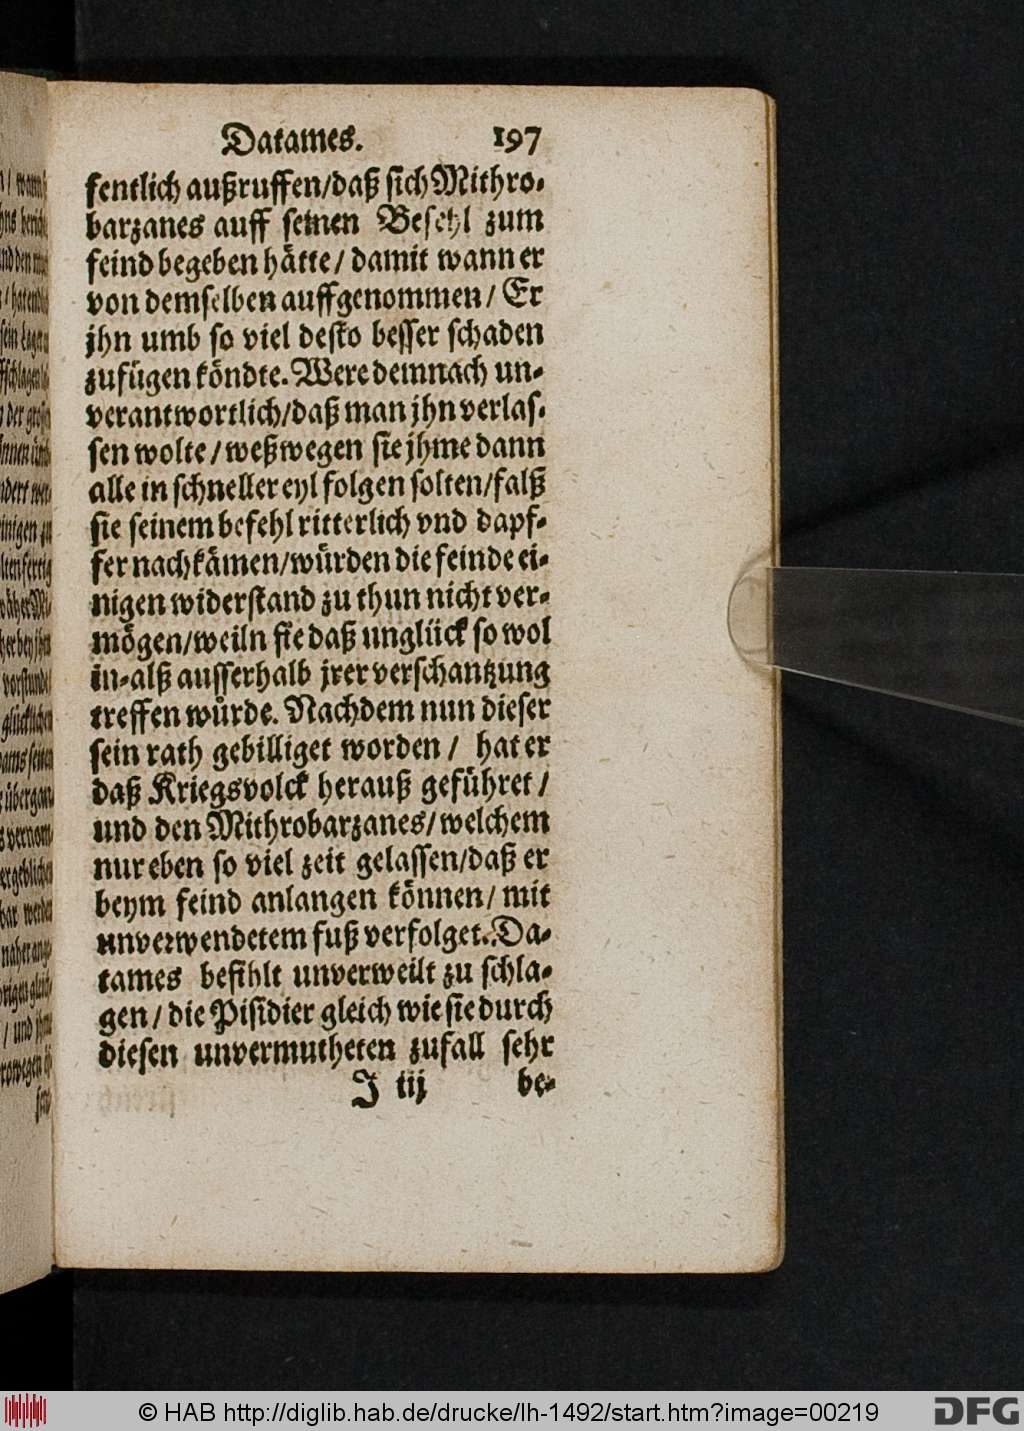 Datames. 197
fentlich außruffen/daß sich Mithro-
barzanes auff seinen Befehl zum
feind begeben hätte/ damit wann er
von demselben auffgenommen/ Er
jhn umb so viel desto besser schaden
zufügen köndte. Were demnach un-
verantwortlich/daß man jhn verlas-
sen wolte/weßwegen sie jhme dann
alle in schneller eyl folgen solten/falß
sie seinem befehl ritterlich vnd dapf-
fer nachkämen/würden die feinde ei-
nigen widerstand zu thun nicht ver-
mögen/weiln sie daß unglück so wol
in-alß ausserhalb jrer verschantzung
treffen würde. Nachdem nun dieser
sein rath gebilliget worden/ hat er
daß Kriegsvolck herauß geführet/
und den Mithrobarzanes/welchem
nur eben so viel zeit gelassen/daß er
beym feind anlangen können/ mit
unverwendetem fuß verfolget. Da-
tames befihlt unverweilt zu schla-
gen/ die Pisidier gleich wie sie durch
diesen unvermutheten zufall sehr
J iij be-
© HAB http://diglib.hab.de/drucke/lh-1492/start.htm?image=00219
DFG